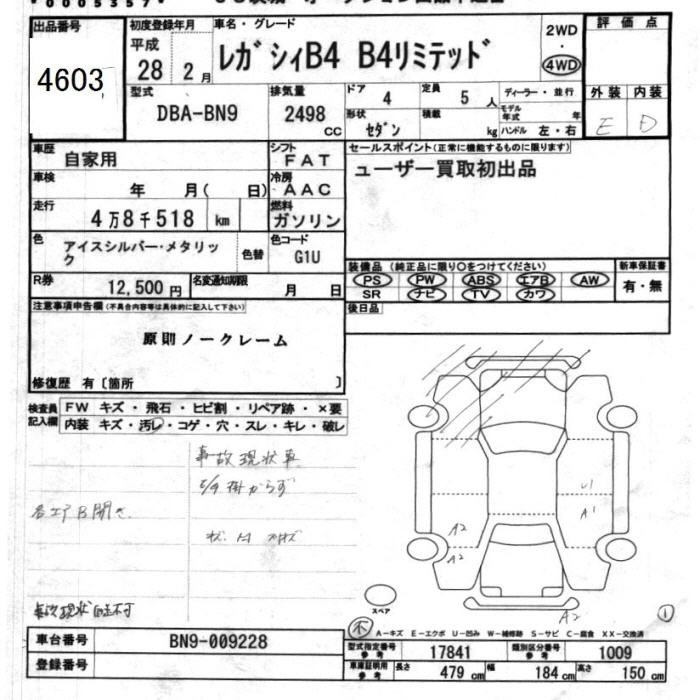 出品番号
4603
初度登録年月
平成
28年 2月
車名・グレード
レガシィB4 B4リミテッド
2WD
・
4WD
評価点
外装 内装
E D
型式
DBA-BN9
排気量
2498
cc
ドア 4
形状 セダン
定員 5人
積載 kg
ディーラー・並行
モデル年式 年
ハンドル 左・右
車歴 自家用
シフト FAT
車検 年 月( 日)
冷房 AAC
走行 4万8千518 km
燃料 ガソリン
色 アイスシルバー・メタリック
色替
色コード G1U
R券 12,500円
名変通知期限 月 日
セールスポイント(正常に機能するものに限ります)
ユーザー買取初出品
装備品(純正品に限り○をつけてください)
PS PW ABS エアB AW
SR ナビ TV カワ
新車保証書
有・無
後日品
注意事項申告欄(不具合内容等は具体的に記入して下さい)
原則ノークレーム
修復歴 有〔箇所 〕
検査員記入欄
FW キズ・飛石・ヒビ割・リペア跡・×要
内装 キズ・汚レ・コゲ・穴・スレ・キレ・破レ
事故現状車
E/G掛からず
各エアB開き
事故現状 自走不可
A2
A2
U1
A1
A2
スペア
①
A-キズ E-エクボ U-凹み W-補修跡 S-サビ C-腐食 XX-交換済
車台番号 BN9-009228
登録番号
型式指定番号 参考 17841
類別区分番号 参考 1009
車庫証明用 参考 長さ 479 cm 幅 184 cm 高さ 150 cm